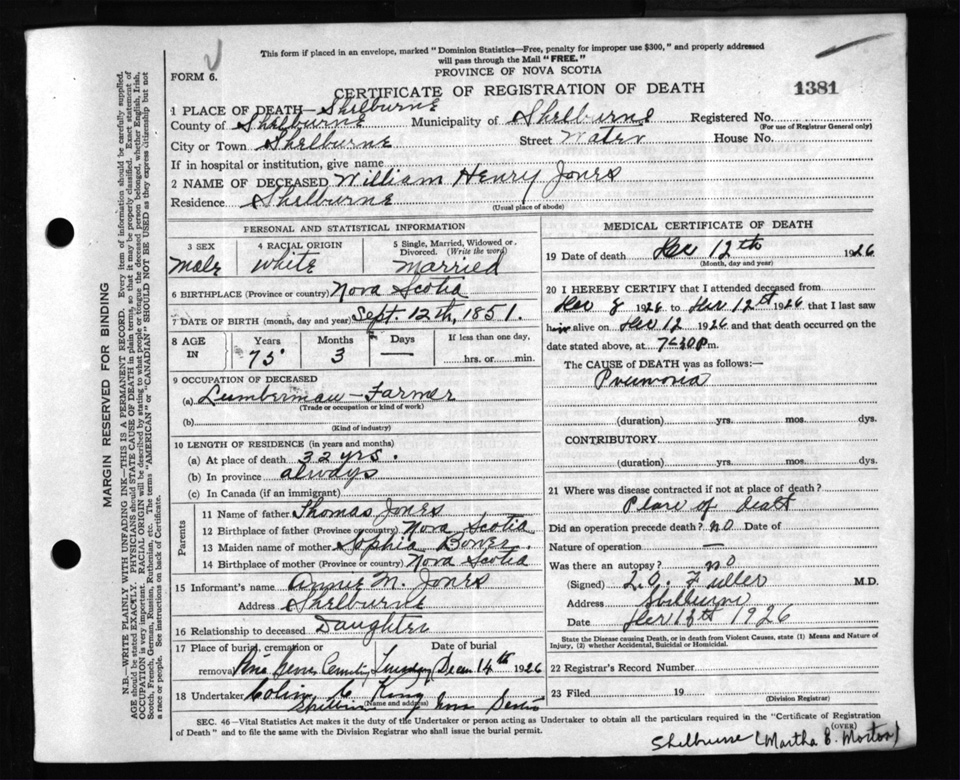 This form if placed in an envelope, marked "Dominion Statistics—Free, penalty for improper use $300," and properly addressed
will pass through the Mail "FREE."
FORM 6.
PROVINCE OF NOVA SCOTIA
CERTIFICATE OF REGISTRATION OF DEATH
1381
1 PLACE OF DEATH— Shelburne
County of Shelburne Municipality of Shelburne Registered No.
(For use of Registrar General only)
City or Town Shelburne Street Water House No.
If in hospital or institution, give name
2 NAME OF DECEASED William Henry Jones
Residence Shelburne
(Usual place of abode)
PERSONAL AND STATISTICAL INFORMATION
3 SEX 4 RACIAL ORIGIN 5 Single, Married, Widowed or Divorced. (Write the word)
Male White Married
6 BIRTHPLACE (Province or country) Nova Scotia
7 DATE OF BIRTH (month, day and year) Sept. 12th, 1851.
8 AGE IN Years Months Days If less than one day,
75 3 — hrs. or min.
9 OCCUPATION OF DECEASED
(a) Lumberman – Farmer
(Trade or occupation or kind of work)
(b)
(Kind of industry)
10 LENGTH OF RESIDENCE (in years and months)
(a) At place of death 32 yrs.
(b) In province always
(c) In Canada (if an immigrant)
Parents
11 Name of father Thomas Jones
12 Birthplace of father (Province or country) Nova Scotia
13 Maiden name of mother Sophia Bower.
14 Birthplace of mother (Province or country) Nova Scotia
15 Informant's name Annie M. Jones
Address Shelburne
16 Relationship to deceased Daughter
17 Place of burial, cremation or Date of burial
removal Cemetry Tuesday 14th 1926
18 Undertaker Colin C. King
(Name and address)
Nova Scotia
MEDICAL CERTIFICATE OF DEATH
19 Date of death Dec 12th 1926
(Month, day and year)
20 I HEREBY CERTIFY that I attended deceased from
Dec 8 1926 to Dec 12st 1926 that I last saw
him alive on Dec 12 1926 and that death occurred on the
date stated above, at 7-30 P m.
The CAUSE of DEATH was as follows:—
Pnumonia
(duration) yrs. mos. dys.
CONTRIBUTORY
(duration) yrs. mos. dys.
21 Where was disease contracted if not at place of death?
Place of deatt
Did an operation precede death? no Date of
Nature of operation —
Was there an autopsy? no
(Signed) L.O. Fuller M.D.
Address Shelburne
Date Dec 13th 1926
State the Disease causing Death, or in death from Violent Causes, state (1) Means and Nature of
Injury, (2) whether Accidental, Suicidal or Homicidal.
22 Registrar's Record Number
23 Filed 19
(Division Registrar)
SEC. 46—Vital Statistics Act makes it the duty of the Undertaker or person acting as Undertaker to obtain all the particulars required in the "Certificate of Registration
of Death" and to file the same with the Division Registrar who shall issue the burial permit.
(OVER)
Shelburne (Martha E. Morton)
MARGIN RESERVED FOR BINDING
N.B.—WRITE PLAINLY WITH UNFADING INK—THIS IS A PERMANENT RECORD. Every item of information should be carefully supplied.
AGE should be stated EXACTLY. PHYSICIANS should STATE CAUSE OF DEATH in plain terms, so that it may be properly classified. Exact statement of
OCCUPATION is very important. RACIAL ORIGIN will be described by stating to what people or tongue the deceased person belonged, whether English, Irish,
Scotch, French, German, Russian, Ruthenian, etc. The terms "AMERICAN" or "CANADIAN" SHOULD NOT BE USED as they express citizenship but not
a race or people. See instructions on back of Certificate.